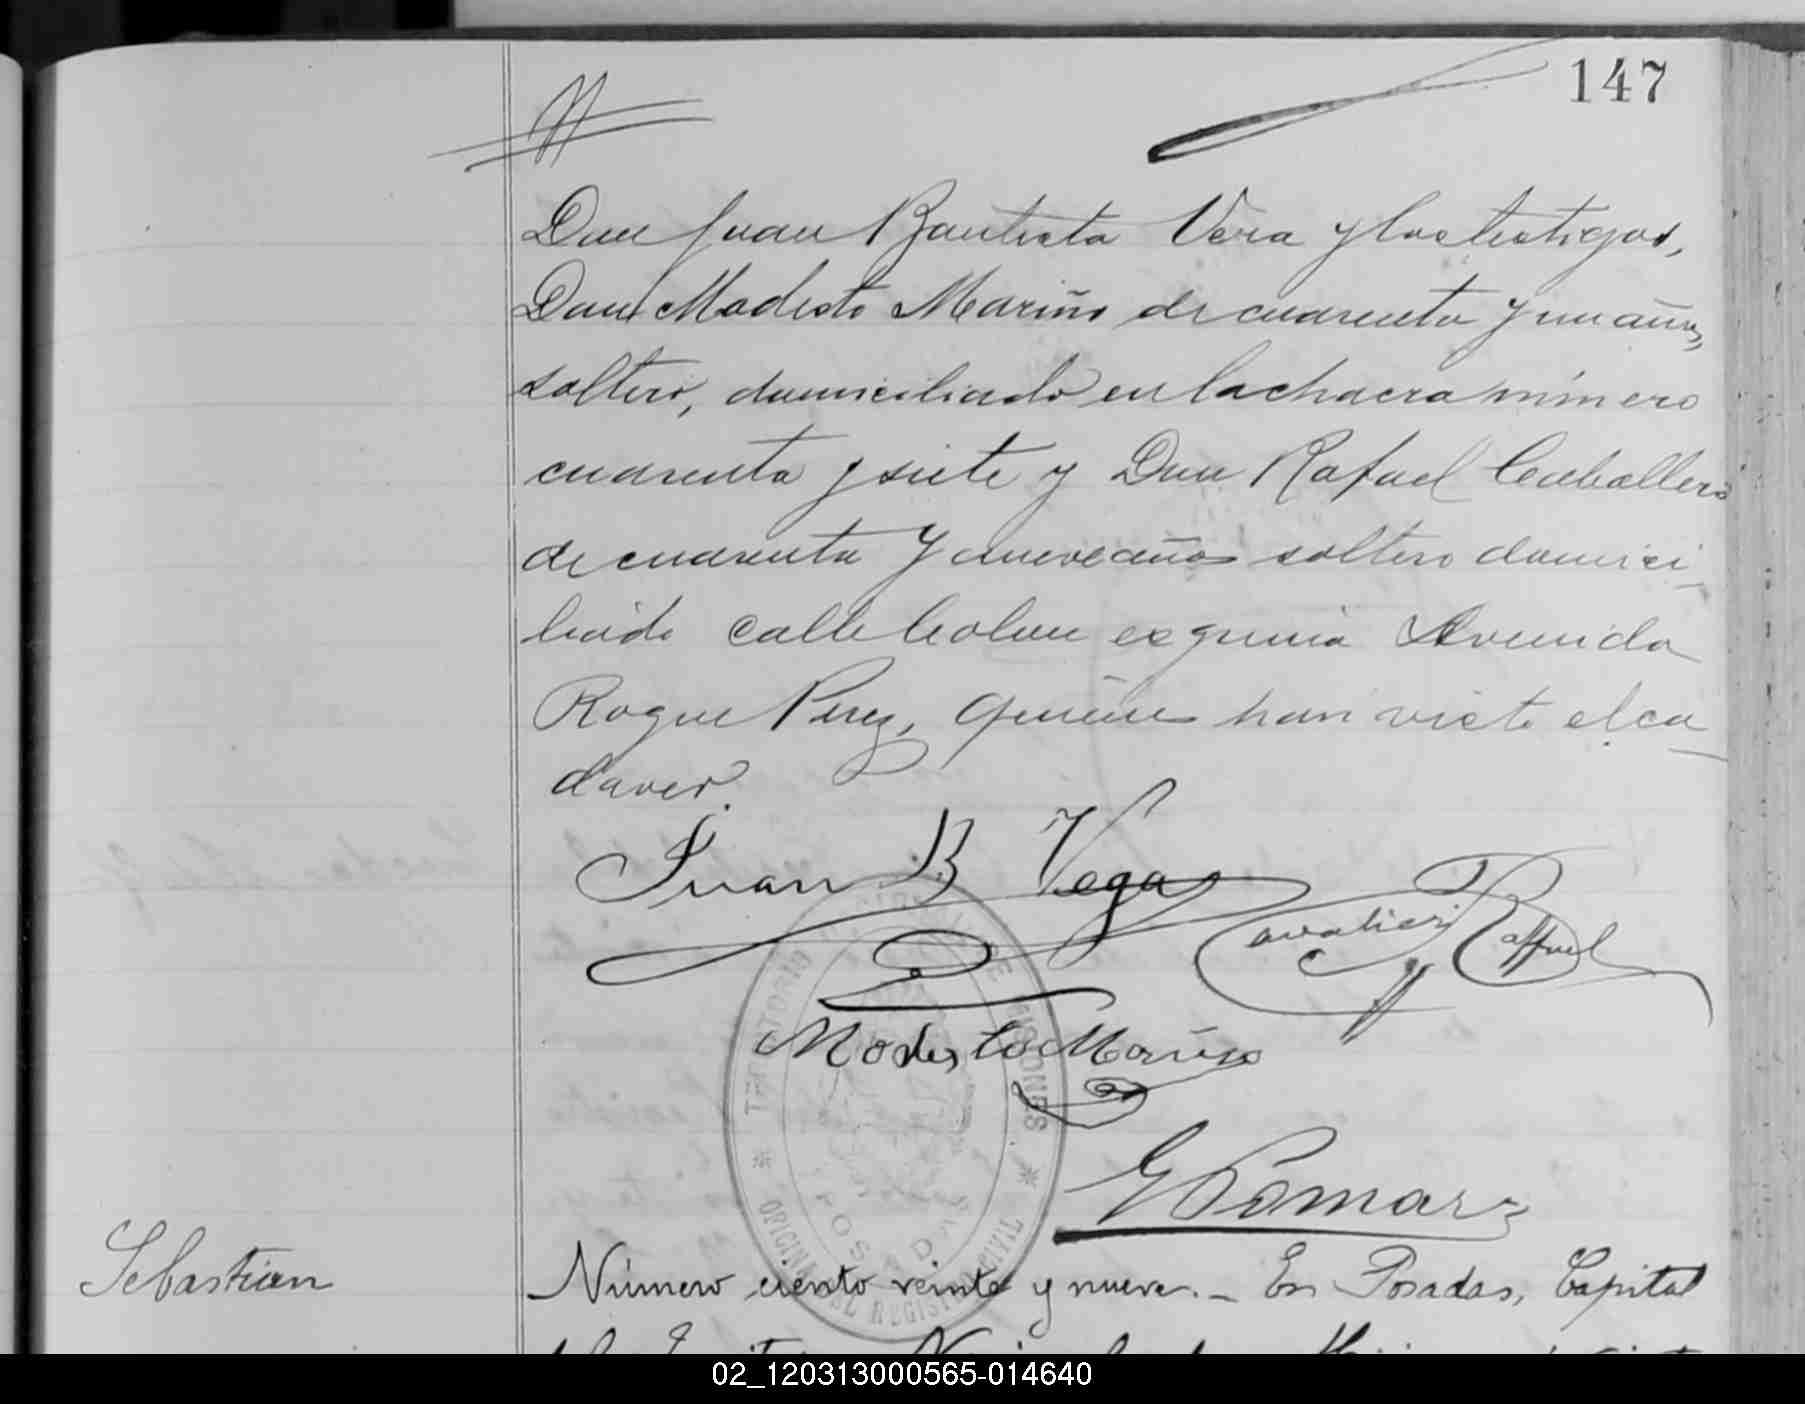 147
Don Juan Bautista Vera y los testigos,
Don Modesto Mariño de cuarenta y un años,
soltero, domiciliado en la chacra número
cuarenta y siete y Don Rafael Caballero
de cuarenta y nueve años soltero domici-
liado calle Colon esquina Avenida
Roque Perez, quienes han visto el ca-
daver.
Juan B Vega
Cavalieri Raffael
Modesto Mariño
TERRITORIO NACIONAL DE MISIONES
POSADAS
OFICINA DEL REGISTRO CIVIL
Sebastian
Número ciento veinte y nueve.- En Posadas, Capital
02_120313000565-014640